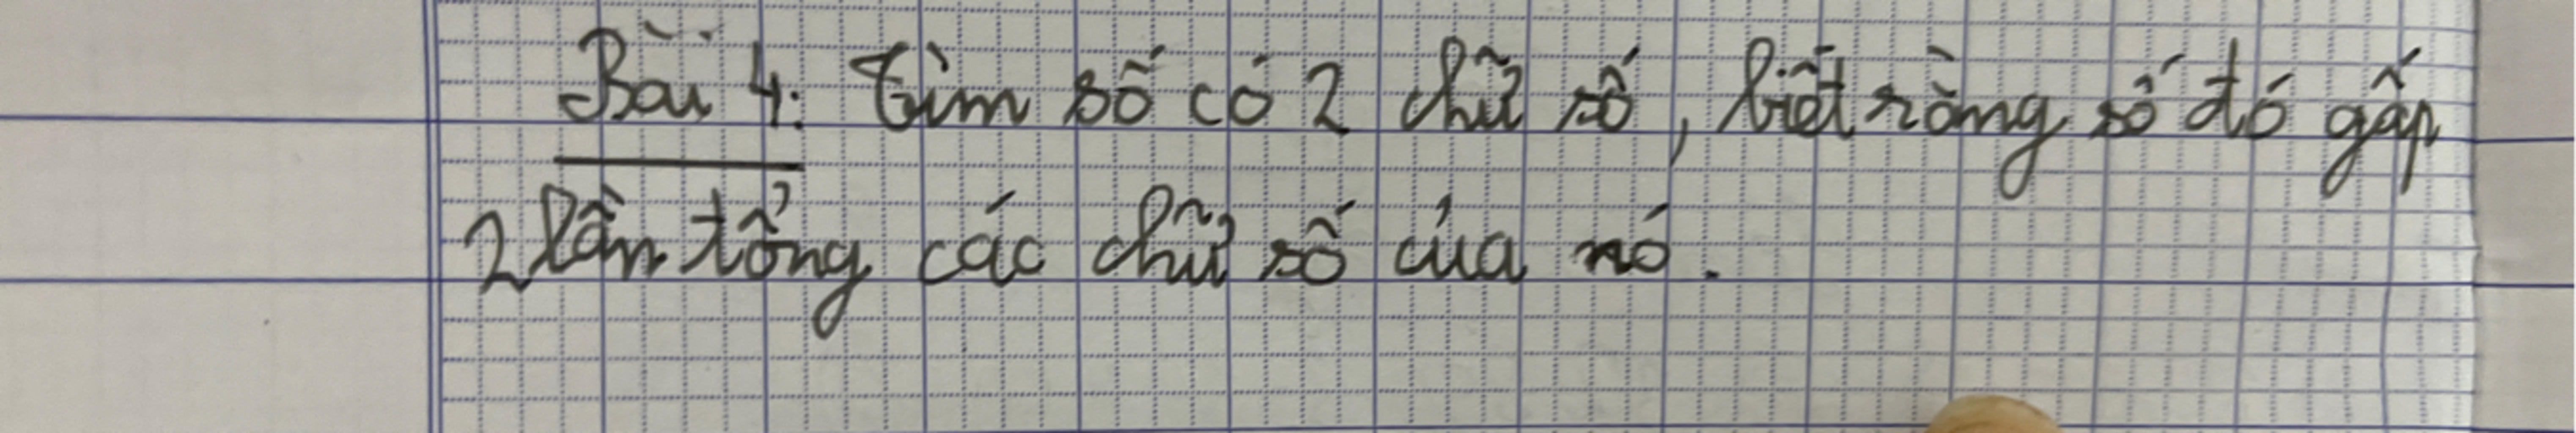 Bài 4: Tìm số có 2 chữ số, biết rằng số đó gấp
2 lần tổng các chữ số của nó.